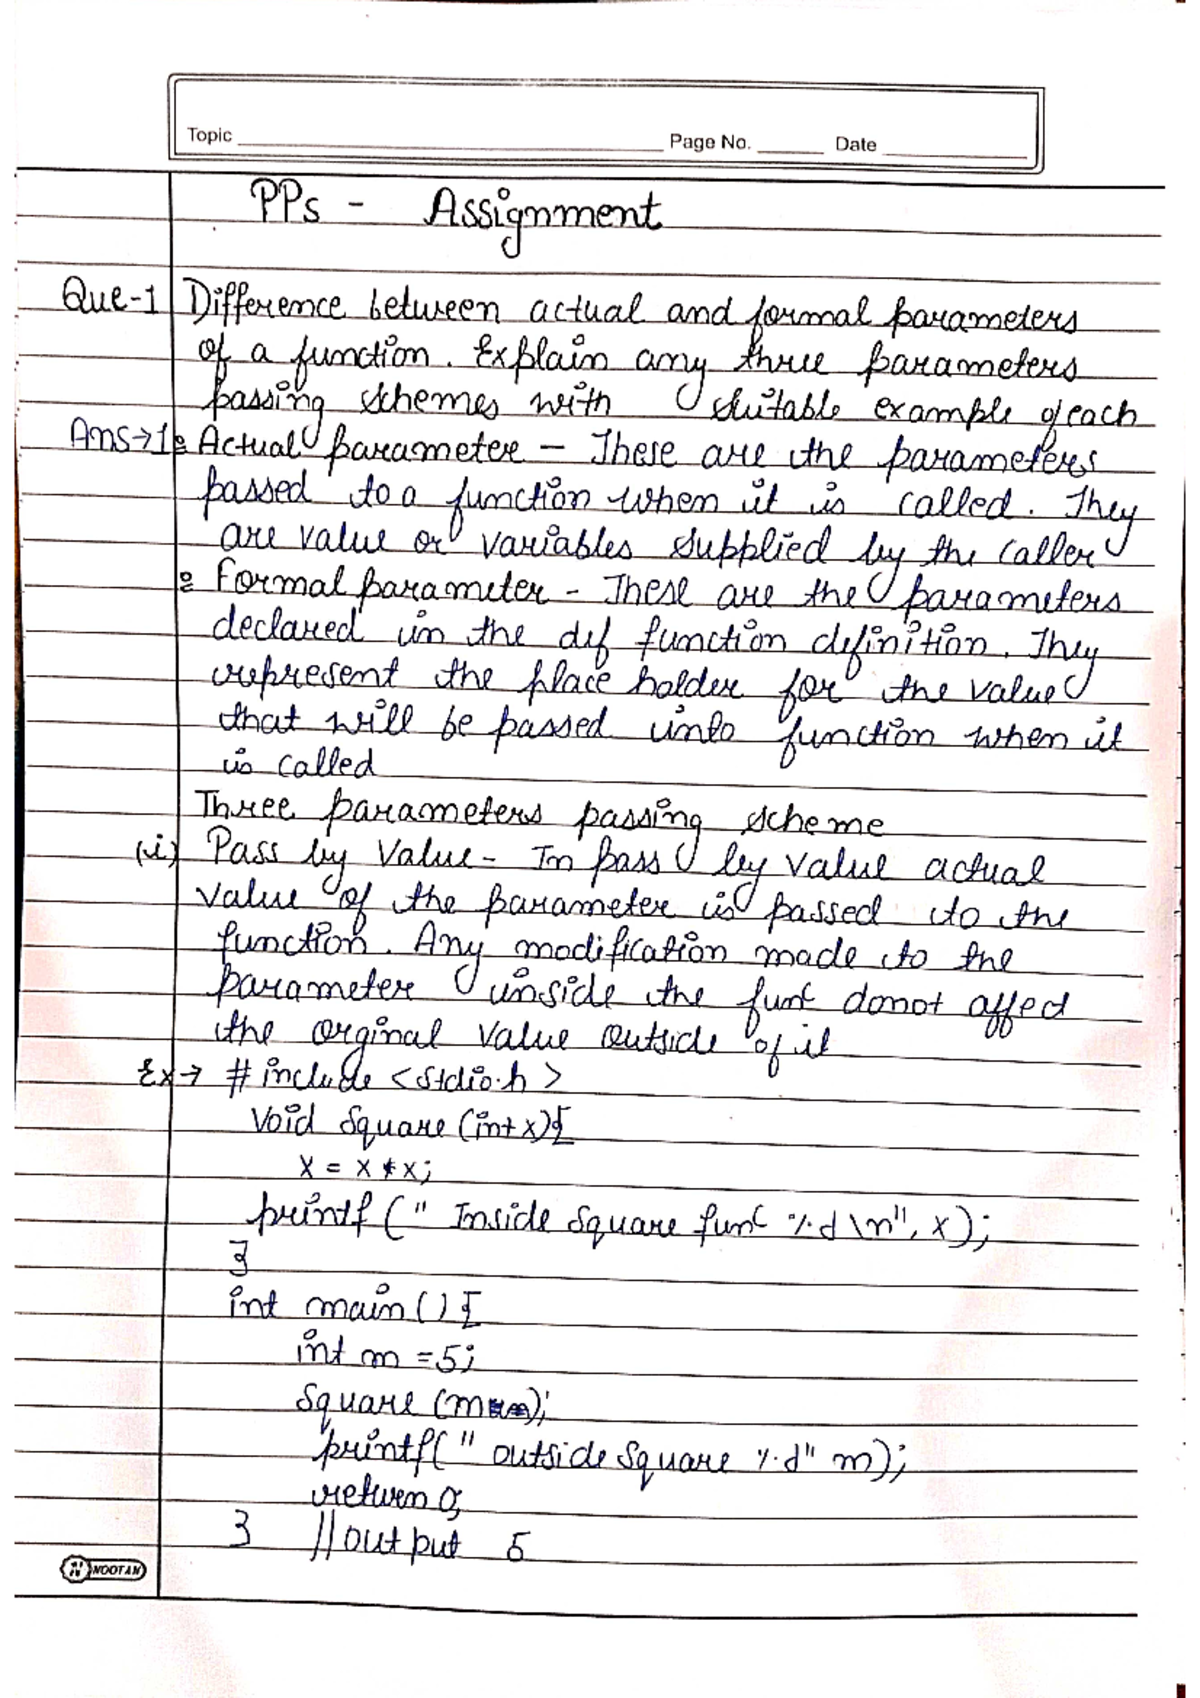 Topic Page No. Date
PPs - Assignment
Que-1 Difference between actual and formal parameters
of a function. Explain any three parameters
passing schemes with suitable example of each
Ans→1: Actual parameter - These are the parameters
passed to a function when it is called. They
are value or variables supplied by the caller
: Formal parameter - These are the parameters
declared in the def function definition. They
represent the place holder for the value
that will be passed into function when it
is called
Three parameters passing scheme
(i) Pass by Value - In pass by value actual
value of the parameter is passed to the
function. Any modification made to the
parameter inside the func donot affed
the orginal value outside of it
Ex→ #include <stdio.h>
void square (int x){
x = x * x;
printf (" Inside square func %d \n", x);
}
int main () {
int m = 5;
square (m);
printf(" outside square %d" m);
return 0;
} //output 5
NOOTAN